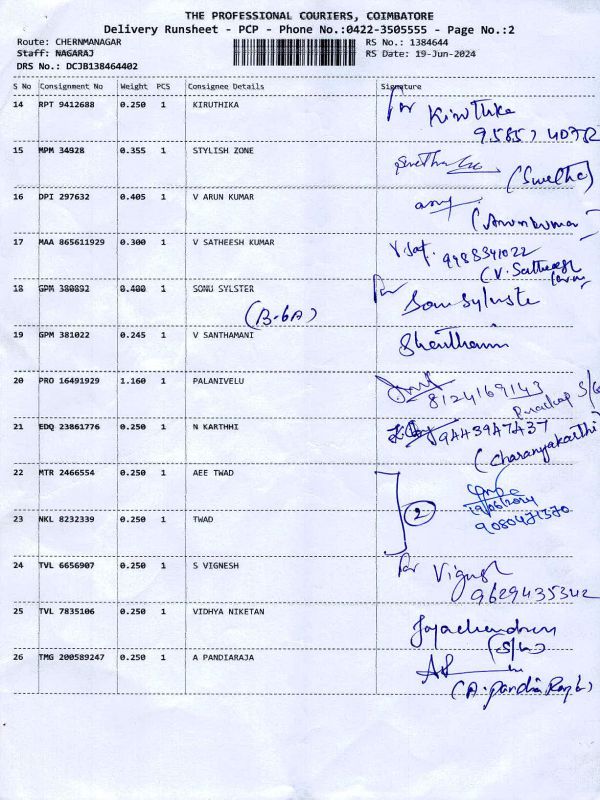 THE PROFESSIONAL COURIERS, COIMBATORE
Delivery Runsheet - PCP - Phone No.:0422-3505555 - Page No.:2
Route: CHERNMANAGAR RS No.: 1384644
Staff: NAGARAJ RS Date: 19-Jun-2024
DRS No.: DCJB138464402
S No Consignment No Weight PCS Consignee Details Signature
14 RPT 9412688 0.250 1 KIRUTHIKA for Kiruthika
15 MPM 34928 0.355 1 STYLISH ZONE
(Swetha)
16 DPI 297632 0.405 1 V ARUN KUMAR
(Arunkumar)
17 MAA 865611929 0.300 1 V SATHEESH KUMAR V.Sat. 9488341022
(V. Satheesh
18 GPM 380892 0.400 1 SONU SYLSTER for
(B-6A)
19 GPM 381022 0.245 1 V SANTHAMANI
20 PRO 16491929 1.160 1 PALANIVELU 8124169143
21 EDQ 23861776 0.250 1 N KARTHHI 9443947437
(Charanyakarthi)
22 MTR 2466554 0.250 1 AEE TWAD
19/06/2024
23 NKL 8232339 0.250 1 TWAD 2
24 TVL 6656907 0.250 1 S VIGNESH for Vignesh
9629435342
25 TVL 7835106 0.250 1 VIDHYA NIKETAN Jayachandran
26 TMG 200589247 0.250 1 A PANDIARAJA